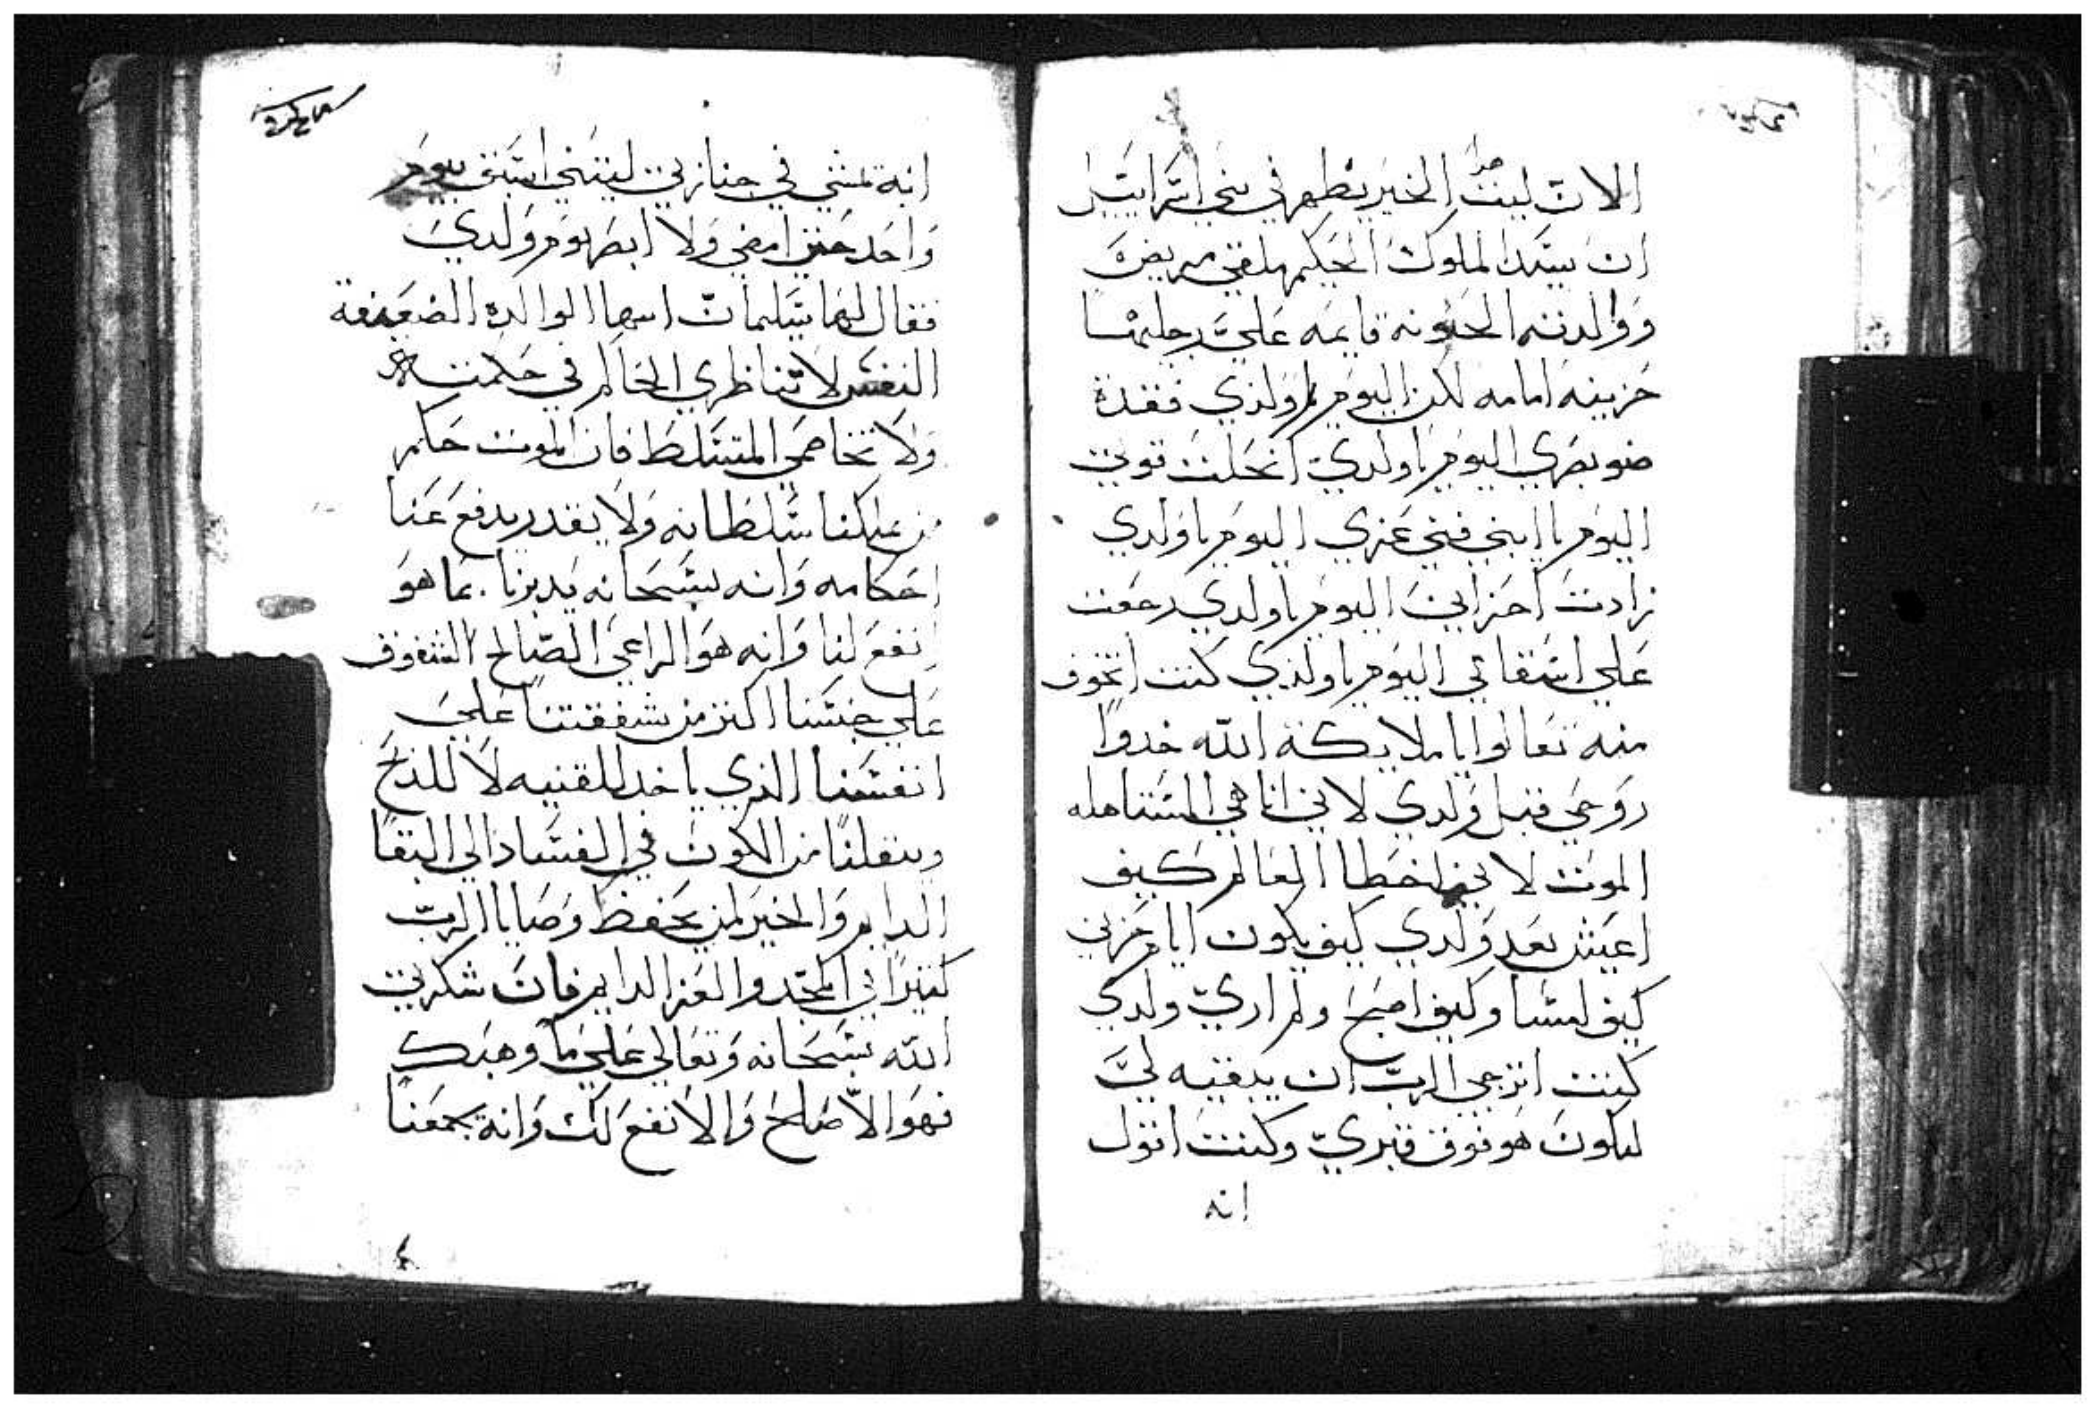 الان ليت هذا الخبر يظهر في بني اسراييل
ان سيد الملوك الحكيم ملقى مريض
ووالدته الحنونه قايمه علي رجليها
حزينه امامه لكن اليوم يا ولدي فقدة
ضو بصري اليوم يا ولدي انحلت قوتي
اليوم يا ابني فني عزي اليوم يا ولدي
زادت احزاني اليوم يا ولدي رجعت
علي اشقاتي اليوم يا ولدي كنت اتخوف
منه تعالوا يا ملايكة الله خدوا
روحي قبل ولدي لاني انا هي المستاهله
الموت لا نخطا العالم كيف
اعيش بعد ولدي كيف يكون ايام حزني
كيف امسا وكيف اصبح ولم اري ولدي
كنت اترجي الرب ان يبقيه لي
ليكون هو فوق قبري وكنت اقول
انه
انه يمشي في جنازتي ليتني اسبق بيوم
واحد حتي امضي ولا ابصر يوم ولدي
فقال لها سليمان ايها الوالدة الضعيفة
النفس لا تناظري الحاكم في حكمته
ولا تخاصمي المتسلط فان الموت حكم
من يملكنا سلطانه ولا يقدر يدفع عنا
احكامه وانه سبحانه يدبرنا بما هو
انفع لنا وانه هو الراعي الصالح الشفوق
علي جنسنا اكتر من شفقتنا علي
انفسنا الذي ياخد للقنيه لا للذبح
وينقلنا من الكون في الفساد الي البقا
الدايم والخير لمن يحفظ وصايا الرب
كتيرا في المجد والعز الدايم فان شكرتي
الله سبحانه وتعالي علي ما وهبك
فهو الاصلح والانفع لك وانه يجمعنا